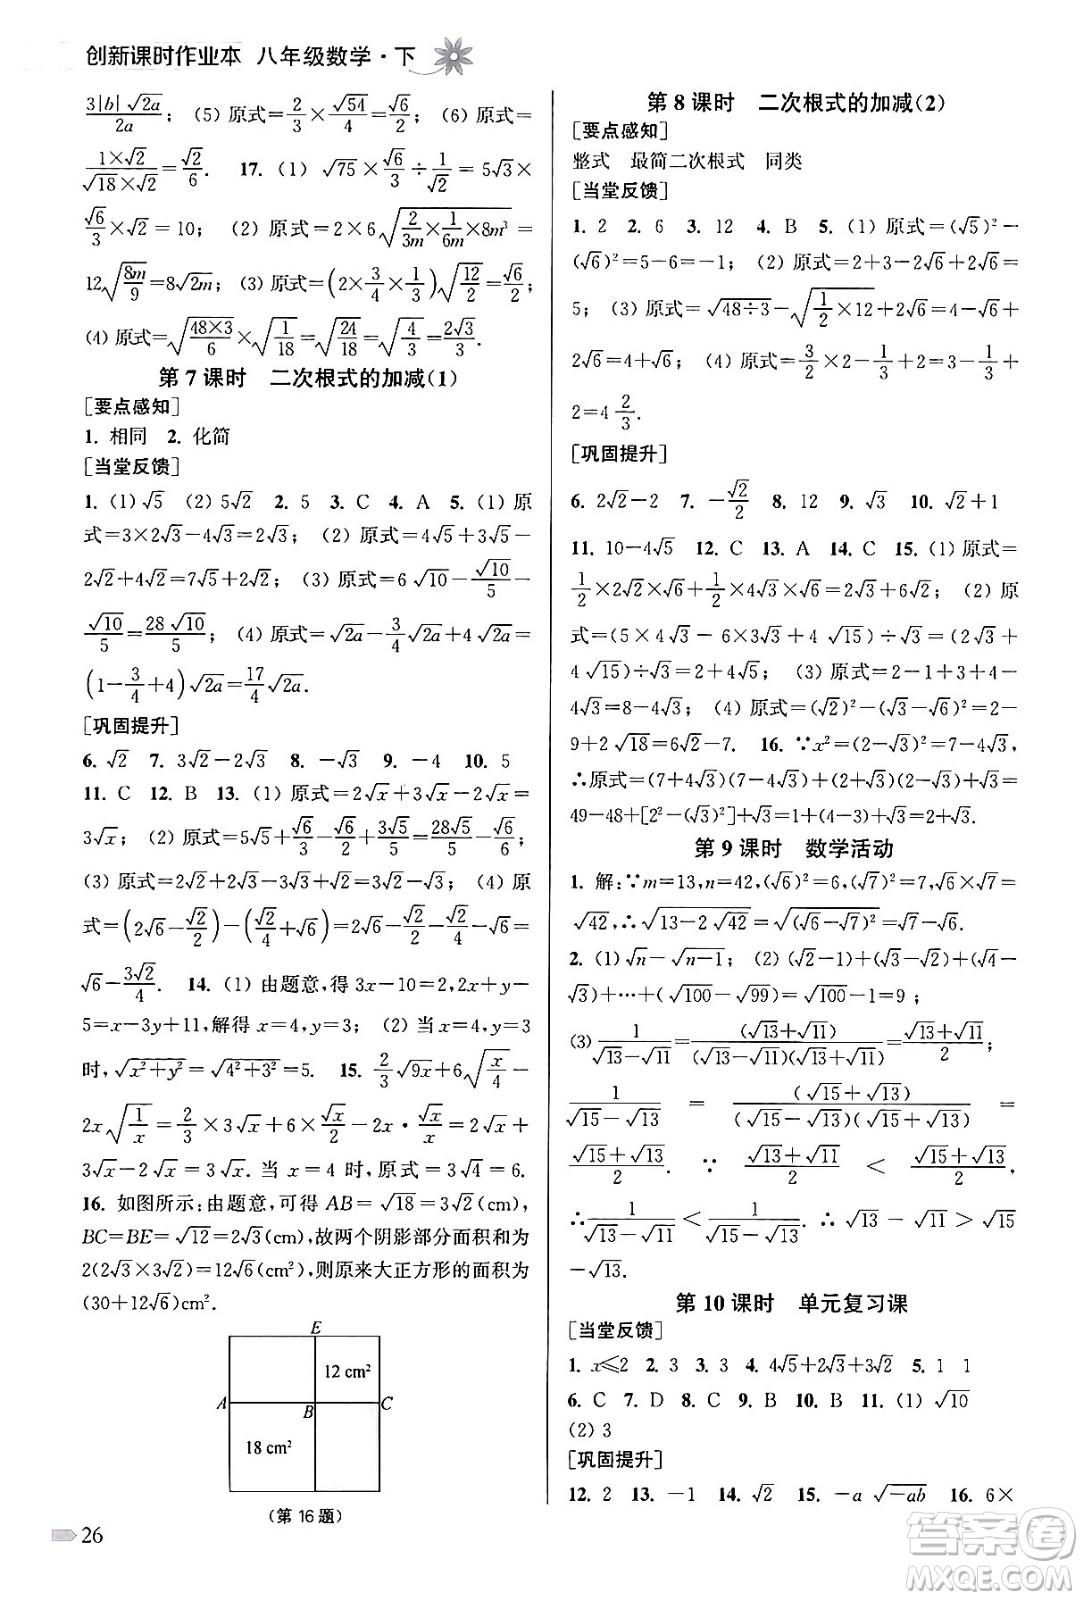 创新课时作业本 八年级数学·下
3|b|√2a/2a; (5) 原式=2/3×√54/4=√6/2; (6) 原式=
1×√2/(√18×√2)=√2/6. 17. (1) √75×√6/3÷1/√2=5√3×
√6/3×√2=10; (2) 原式=2×6√(2/3m×1/6m×8m³)=
12√(8m/9)=8√2m; (3) 原式=(2×3/4×1/3)√(12/2)=√6/2;
(4) 原式=√(48×3)/6×√(1/18)=√(24/18)=√(4/3)=2√3/3.
第 7 课时 二次根式的加减(1)
[要点感知]
1. 相同 2. 化简
[当堂反馈]
1. (1) √5 (2) 5√2 2. 5 3. C 4. A 5. (1) 原
式=3×2√3-4√3=2√3; (2) 原式=4√5+3√5-
2√2+4√2=7√5+2√2; (3) 原式=6√10-√10/5-
√10/5=28√10/5; (4) 原式=√2a-3/4√2a+4√2a=
(1-3/4+4)√2a=17/4√2a.
[巩固提升]
6. √2 7. 3√2-2√3 8. -√3 9. -4 10. 5
11. C 12. B 13. (1) 原式=2√x+3√x-2√x=
3√x; (2) 原式=5√5+√6/2-√6/2+3√5/5=28√5/5;
(3) 原式=2√2+2√3-3√3+3√2=5√2-√3; (4) 原
式=(2√6-√2/2)-(√2/4+√6)=2√6-√2/2-√2/4-√6=
√6-3√2/4. 14. (1) 由题意,得 3x-10=2,2x+y-
5=x-3y+11,解得 x=4,y=3; (2) 当 x=4,y=3
时,√(x²+y²)=√(4²+3²)=5. 15. 2/3√9x+6√(x/4)-
2x√(1/x)=2/3×3√x+6×√x/2-2x·√x/x=2√x+
3√x-2√x=3√x. 当 x=4 时,原式=3√4=6.
16. 如图所示:由题意,可得 AB=√18=3√2(cm),
BC=BE=√12=2√3(cm),故两个阴影部分面积和为
2(2√3×3√2)=12√6(cm²),则原来大正方形的面积为
(30+12√6)cm².
E
12 cm²
A
B
C
18 cm²
(第 16 题)
26
第 8 课时 二次根式的加减(2)
[要点感知]
整式 最简二次根式 同类
[当堂反馈]
1. 2 2. 6 3. 12 4. B 5. (1) 原式=(√5)²-
(√6)²=5-6=-1; (2) 原式=2+3-2√6+2√6=
5; (3) 原式=√(48÷3)-√(1/2×12)+2√6=4-√6+
2√6=4+√6; (4) 原式=3/2×2-1/3=3-1/3+
2=4 2/3.
[巩固提升]
6. 2√2-2 7. -√2/2 8. 12 9. √3 10. √2+1
11. 10-4√5 12. C 13. A 14. C 15. (1) 原式=
1/2×2√2×√6+1/2×4√3×√6=2√3+6√2; (2) 原
式=(5×4√3-6×3√3+4√15)÷√3=(2√3+
4√15)÷√3=2+4√5; (3) 原式=2-1+3+4-
4√3=8-4√3; (4) 原式=(√2)²-(√3-√6)²=2-
9+2√18=6√2-7. 16. ∵x²=(2-√3)²=7-4√3,
∴原式=(7+4√3)(7-4√3)+(2+√3)(2-√3)+√3=
49-48+[2²-(√3)²]+√3=1+(4-3)+√3=2+√3.
第 9 课时 数学活动
1. 解:∵m=13,n=42,(√6)²=6,(√7)²=7,√6×√7=
√42,∴√(13-2√42)=√((√6-√7)²)=√7-√6.
2. (1) √n-√(n-1); (2) (√2-1)+(√3-√2)+(√4-
√3)+…+(√100-√99)=√100-1=9;
(3) 1/(√13-√11)=(√13+√11)/((√13-√11)(√13+√11))=(√13+√11)/2;
1/(√15-√13) = (√15+√13)/((√15-√13)(√15+√13)) =
(√15+√13)/2. ∵ (√13+√11)/2 < (√15+√13)/2,
∴1/(√13-√11)<1/(√15-√13). ∴ √13-√11>√15
-√13.
第 10 课时 单元复习课
[当堂反馈]
1. x≤2 2. 3 3. 3 4. 4√5+2√3+3√2 5. 1 1
6. C 7. D 8. C 9. C 10. B 11. (1) √10
(2) 3
[巩固提升]
12. 2 13. -1 14. √2 15. -a√-ab 16. 6×
答案卷
MXQE.COM